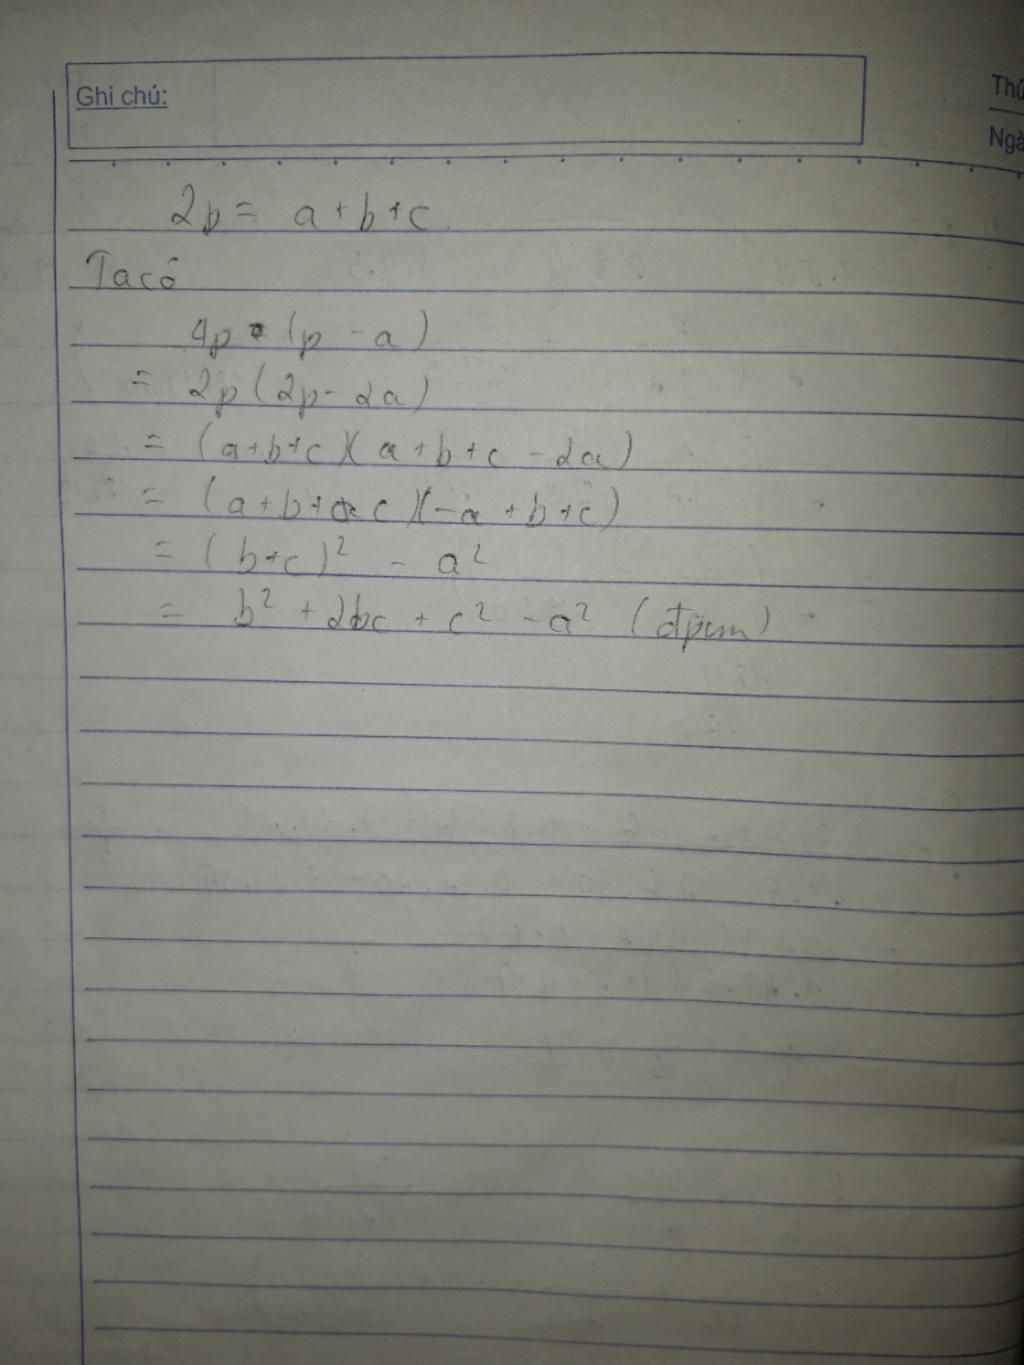 Ghi chú:
Thứ
Ngà
2p = a + b + c
Ta có
4p (p - a)
= 2p (2p - 2a)
= (a+b+c)(a+b+c - 2a)
= (a+b+c)(-a+b+c)
= (b+c)² - a²
= b² + 2bc + c² - a² (đpcm)